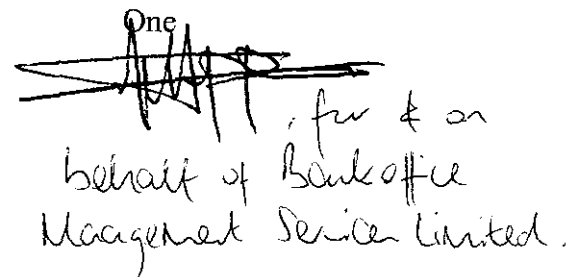 One
, for & on
behalf of Bankoffice
Management Services Limited.